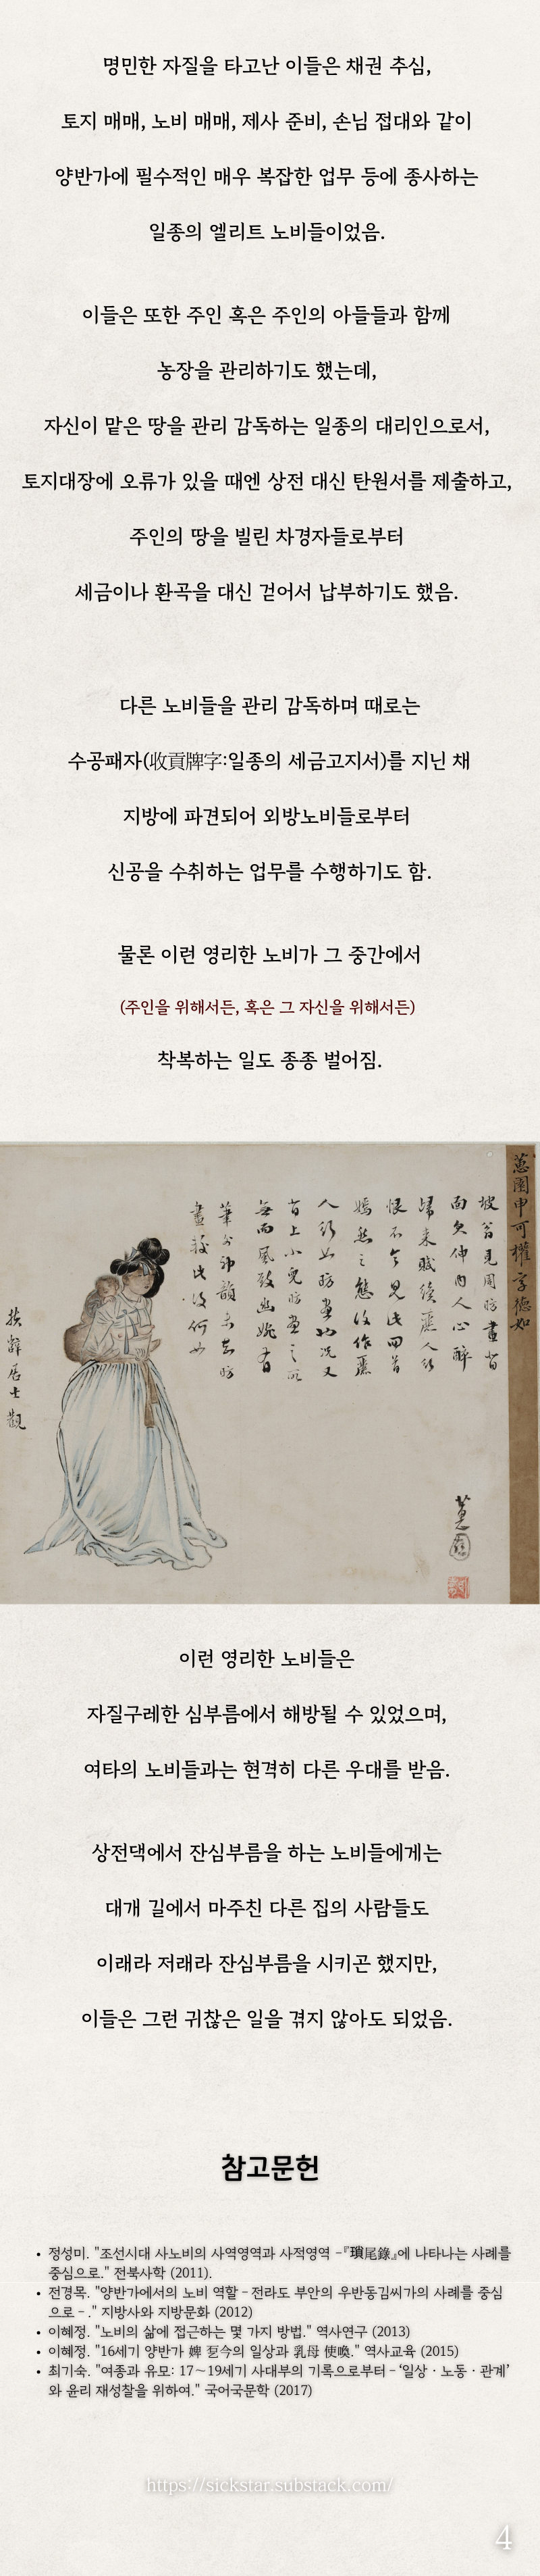 명민한 자질을 타고난 이들은 채권 추심,
토지 매매, 노비 매매, 제사 준비, 손님 접대와 같이
양반가에 필수적인 매우 복잡한 업무 등에 종사하는
일종의 엘리트 노비들이었음.
이들은 또한 주인 혹은 주인의 아들들과 함께
농장을 관리하기도 했는데,
자신이 맡은 땅을 관리 감독하는 일종의 대리인으로서,
토지대장에 오류가 있을 때엔 상전 대신 탄원서를 제출하고,
주인의 땅을 빌린 차경자들로부터
세금이나 환곡을 대신 걷어서 납부하기도 했음.
다른 노비들을 관리 감독하며 때로는
수공패자(收貢牌字:일종의 세금고지서)를 지닌 채
지방에 파견되어 외방노비들로부터
신공을 수취하는 업무를 수행하기도 함.
물론 이런 영리한 노비가 그 중간에서
(주인을 위해서든, 혹은 그 자신을 위해서든)
착복하는 일도 종종 벌어짐.
蕙園申可權字德如
坡翁見周昉畫背
面欠伸內人心醉
歸來賦續麗人行
恨不令見此回首
嫣然之態復作麗
人行如昉畫也況又
背上小兒昉畫之所
無而風致幽婉者
筆外神韻未知昉
畫較此復何如
蕙園
扶辭居士觀
이런 영리한 노비들은
자질구레한 심부름에서 해방될 수 있었으며,
여타의 노비들과는 현격히 다른 우대를 받음.
상전댁에서 잔심부름을 하는 노비들에게는
대개 길에서 마주친 다른 집의 사람들도
이래라 저래라 잔심부름을 시키곤 했지만,
이들은 그런 귀찮은 일을 겪지 않아도 되었음.
참고문헌
• 정성미. "조선시대 사노비의 사역영역과 사적영역 -『瑣尾錄』에 나타나는 사례를
중심으로." 전북사학 (2011).
• 전경목. "양반가에서의 노비 역할 - 전라도 부안의 우반동김씨가의 사례를 중심
으로 - ." 지방사와 지방문화 (2012)
• 이혜정. "노비의 삶에 접근하는 몇 가지 방법." 역사연구 (2013)
• 이혜정. "16세기 양반가 婢 㐗今의 일상과 乳母 使喚." 역사교육 (2015)
• 최기숙. "여종과 유모: 17～19세기 사대부의 기록으로부터 - ‘일상 · 노동 · 관계’
와 윤리 재성찰을 위하여." 국어국문학 (2017)
https://sickstar.substack.com/
4